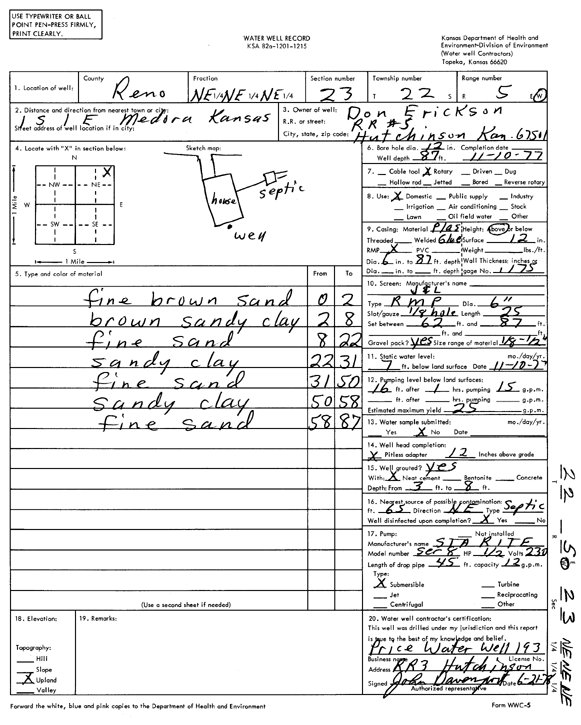 USE TYPEWRITER OR BALL
POINT PEN-PRESS FIRMLY,
PRINT CLEARLY.
WATER WELL RECORD
KSA 82a-1201-1215
Kansas Department of Health and
Environment-Division of Environment
(Water well Contractors)
Topeka, Kansas 66620
1. Location of well: County Reno Fraction NE 1/4 NE 1/4 NE 1/4 Section number 23 Township number T 22 S Range number R 5 E/W
2. Distance and direction from nearest town or city: 1 S 1 E Medora Kansas
Street address of well location if in city:
3. Owner of well: Don Erickson
R.R. or street: RR #5
City, state, zip code: Hutchinson Kan. 67501
4. Locate with "X" in section below:
N
NW NE X
W E
SW SE
S
1 Mile
1 Mile
Sketch map:
house
septic
well
6. Bore hole dia. 12 in. Completion date
Well depth 87 ft. 11-10-77
7. Cable tool X Rotary Driven Dug
Hollow rod Jetted Bored Reverse rotary
8. Use: X Domestic Public supply Industry
Irrigation Air conditioning Stock
Lawn Oil field water Other
9. Casing: Material Plas Height: Above or below
Threaded Welded Glue Surface 12 in.
RMP X PVC Weight lbs./ft.
Dia. 6 in. to 87 ft. depth Wall Thickness: inches or
Dia. in. to ft. depth gage No. 1175
5. Type and color of material From To
fine brown sand 0 2
brown sandy clay 2 8
fine sand 8 22
sandy clay 22 31
fine sand 31 50
sandy clay 50 58
fine sand 58 87
(Use a second sheet if needed)
10. Screen: Manufacturer's name
J&L
Type RMP Dia. 6"
Slot/gauze 1/8 hole Length 25
Set between 62 ft. and 87 ft.
ft. and ft.
Gravel pack? yes Size range of material 1/8-1/2"
11. Static water level: mo./day/yr.
7 ft. below land surface Date 11-10-77
12. Pumping level below land surfaces:
16 ft. after 1 hrs. pumping 15 g.p.m.
ft. after hrs. pumping g.p.m.
Estimated maximum yield 25 g.p.m.
13. Water sample submitted: mo./day/yr.
Yes X No Date
14. Well head completion:
X Pitless adapter 12 Inches above grade
15. Well grouted? yes
With: X Neat cement Bentonite Concrete
Depth: From 3 ft. to 8 ft.
16. Nearest source of possible contamination:
ft. 65 Direction NE Type Septic
Well disinfected upon completion? X Yes No
17. Pump: Not installed
Manufacturer's name STA RITE
Model number Ser 8 HP 1/2 Volts 230
Length of drop pipe 45 ft. capacity 12 g.p.m.
Type:
X Submersible Turbine
Jet Reciprocating
Centrifugal Other
18. Elevation:
Topography:
Hill
Slope
X Upland
Valley
19. Remarks:
20. Water well contractor's certification:
This well was drilled under my jurisdiction and this report
is true to the best of my knowledge and belief.
Price Water Well 193
Business name License No.
Address RR3 Hutchinson
Signed John Davenport Date 6-21-78
Authorized representative
Forward the white, blue and pink copies to the Department of Health and Environment
Form WWC-5
T 22 - R 5 W Sec 23 NE NE NE
1/4 1/4 1/4